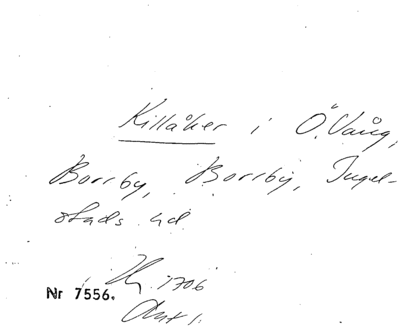 Killåker i Ö. Vång,
Borrby, Borrby, Ingel-
stads hd
1706
Nr 7556.